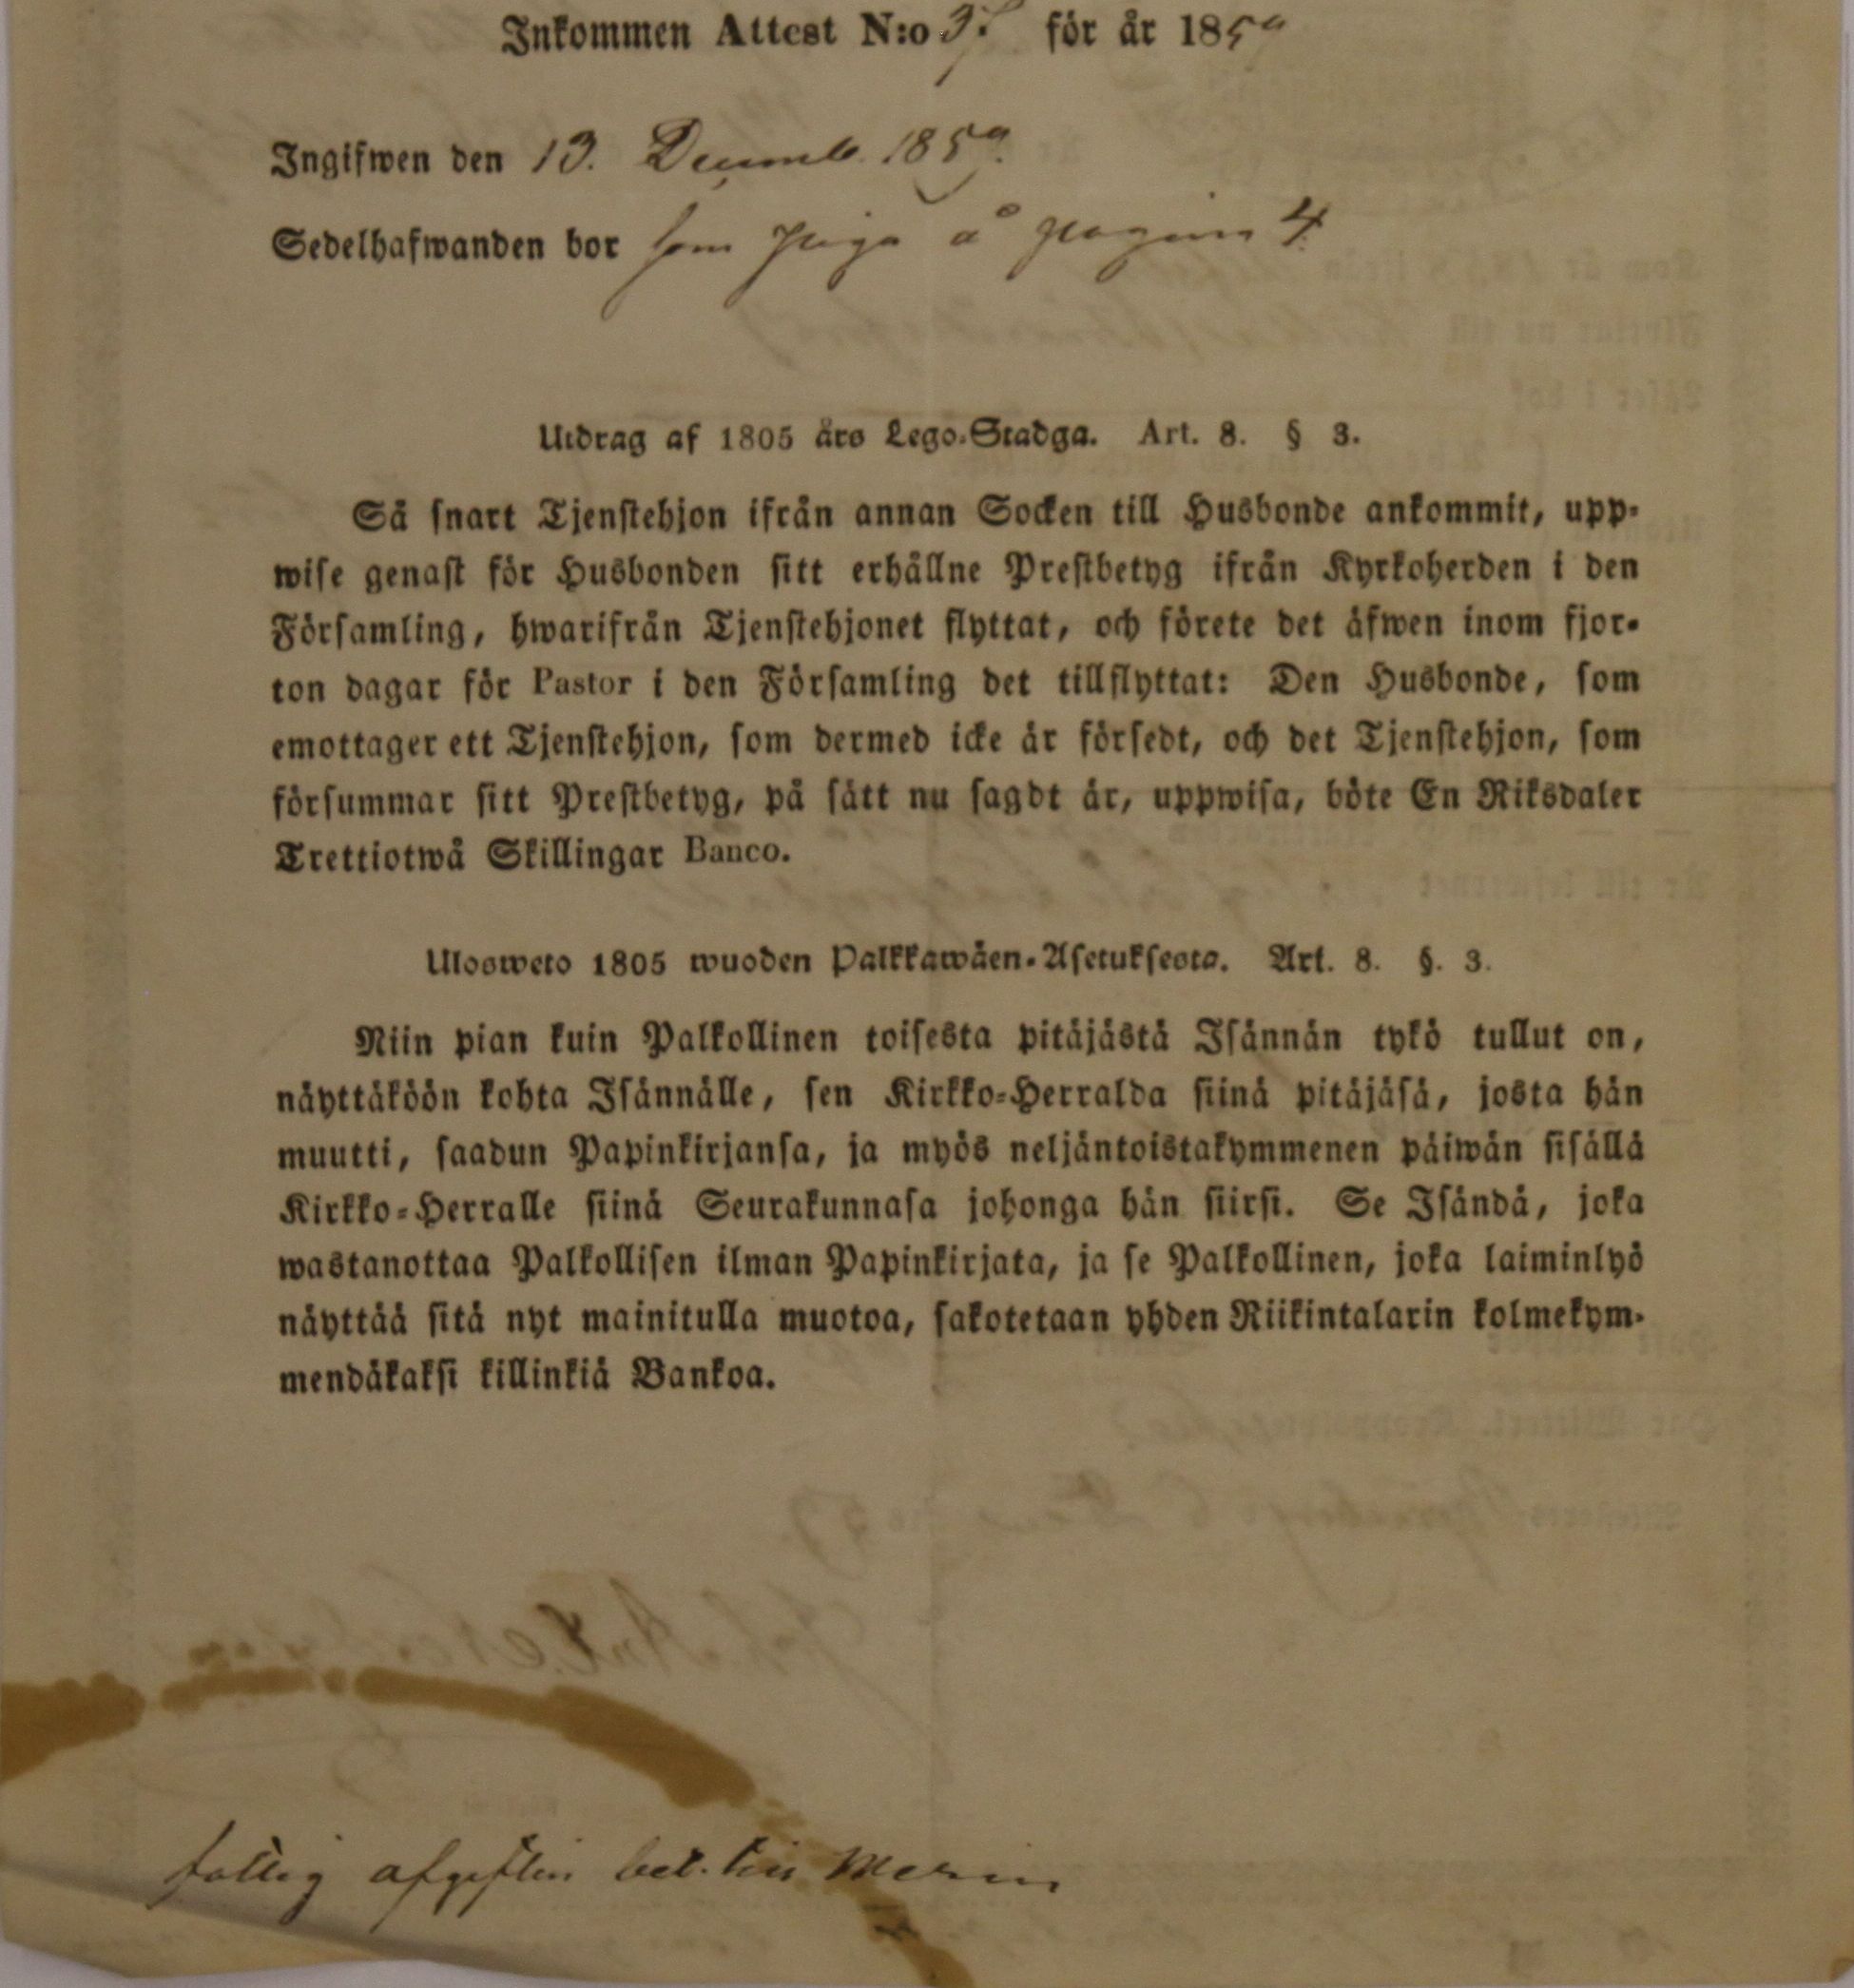 Inkommen Attest N:o 37 för år 1859
Ingifwen den 13. Decemb. 1859.
Sedelhafwanden bor som piga å pagina 4.
Utdrag af 1805 års Lego-Stadga. Art. 8. § 3.
Så snart Tjenstehjon ifrån annan Socken till Husbonde ankommit, upp-
wise genast för Husbonden sitt erhållne Prestbetyg ifrån Kyrkoherden i den
Församling, hwarifrån Tjenstehjonet flyttat, och förete det äfwen inom fjor-
ton dagar för Pastor i den Församling det tillflyttat: Den Husbonde, som
emottager ett Tjenstehjon, som dermed icke är försedt, och det Tjenstehjon, som
försummar sitt Prestbetyg, på sätt nu sagdt är, uppwisa, böte En Riksdaler
Trettiotwå Skillingar Banco.
Ulosweto 1805 wuoden Palkkawäen-Asetuksesta. Art. 8. §. 3.
Niin pian kuin Palkollinen toisesta pitäjästä Isännän tykö tullut on,
näyttäköön kohta Isännälle, sen Kirkko-Herralda siinä pitäjäsä, josta hän
muutti, saadun Papinkirjansa, ja myös neljäntoistakymmenen päiwän sisällä
Kirkko-Herralle siinä Seurakunnasa johonga hän siirsi. Se Isändä, joka
wastanottaa Palkollisen ilman Papinkirjata, ja se Palkollinen, joka laiminlyö
näyttää sitä nyt mainitulla muotoa, sakotetaan yhden Riikintalarin kolmekym-
mendäkaksi killinkiä Bankoa.
fattig afgiften bet.